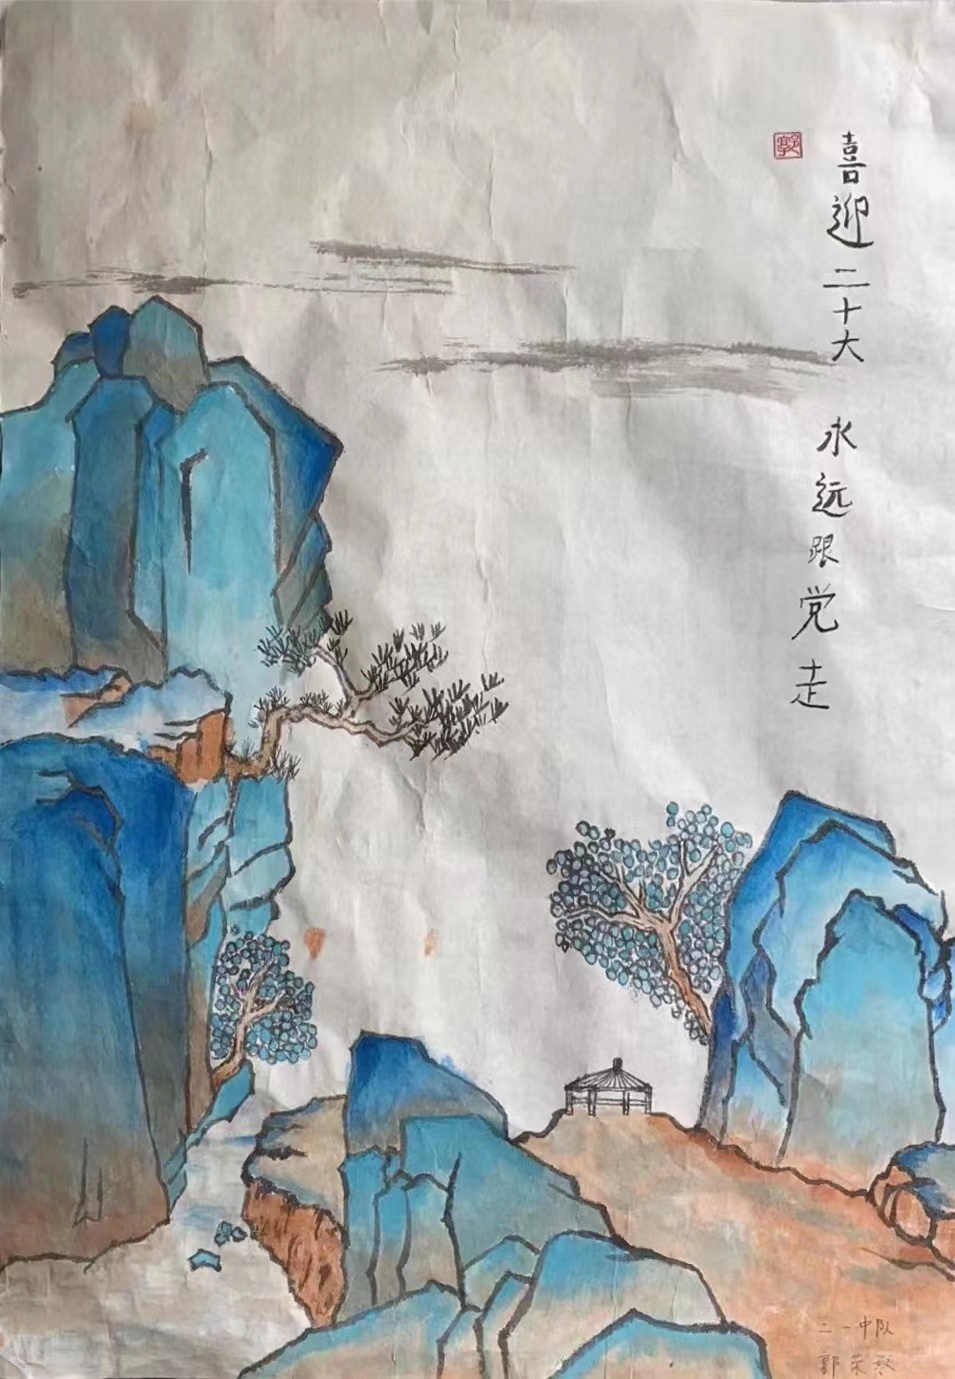 喜迎二十大 永远跟党走
郭
二一中队
郭荣